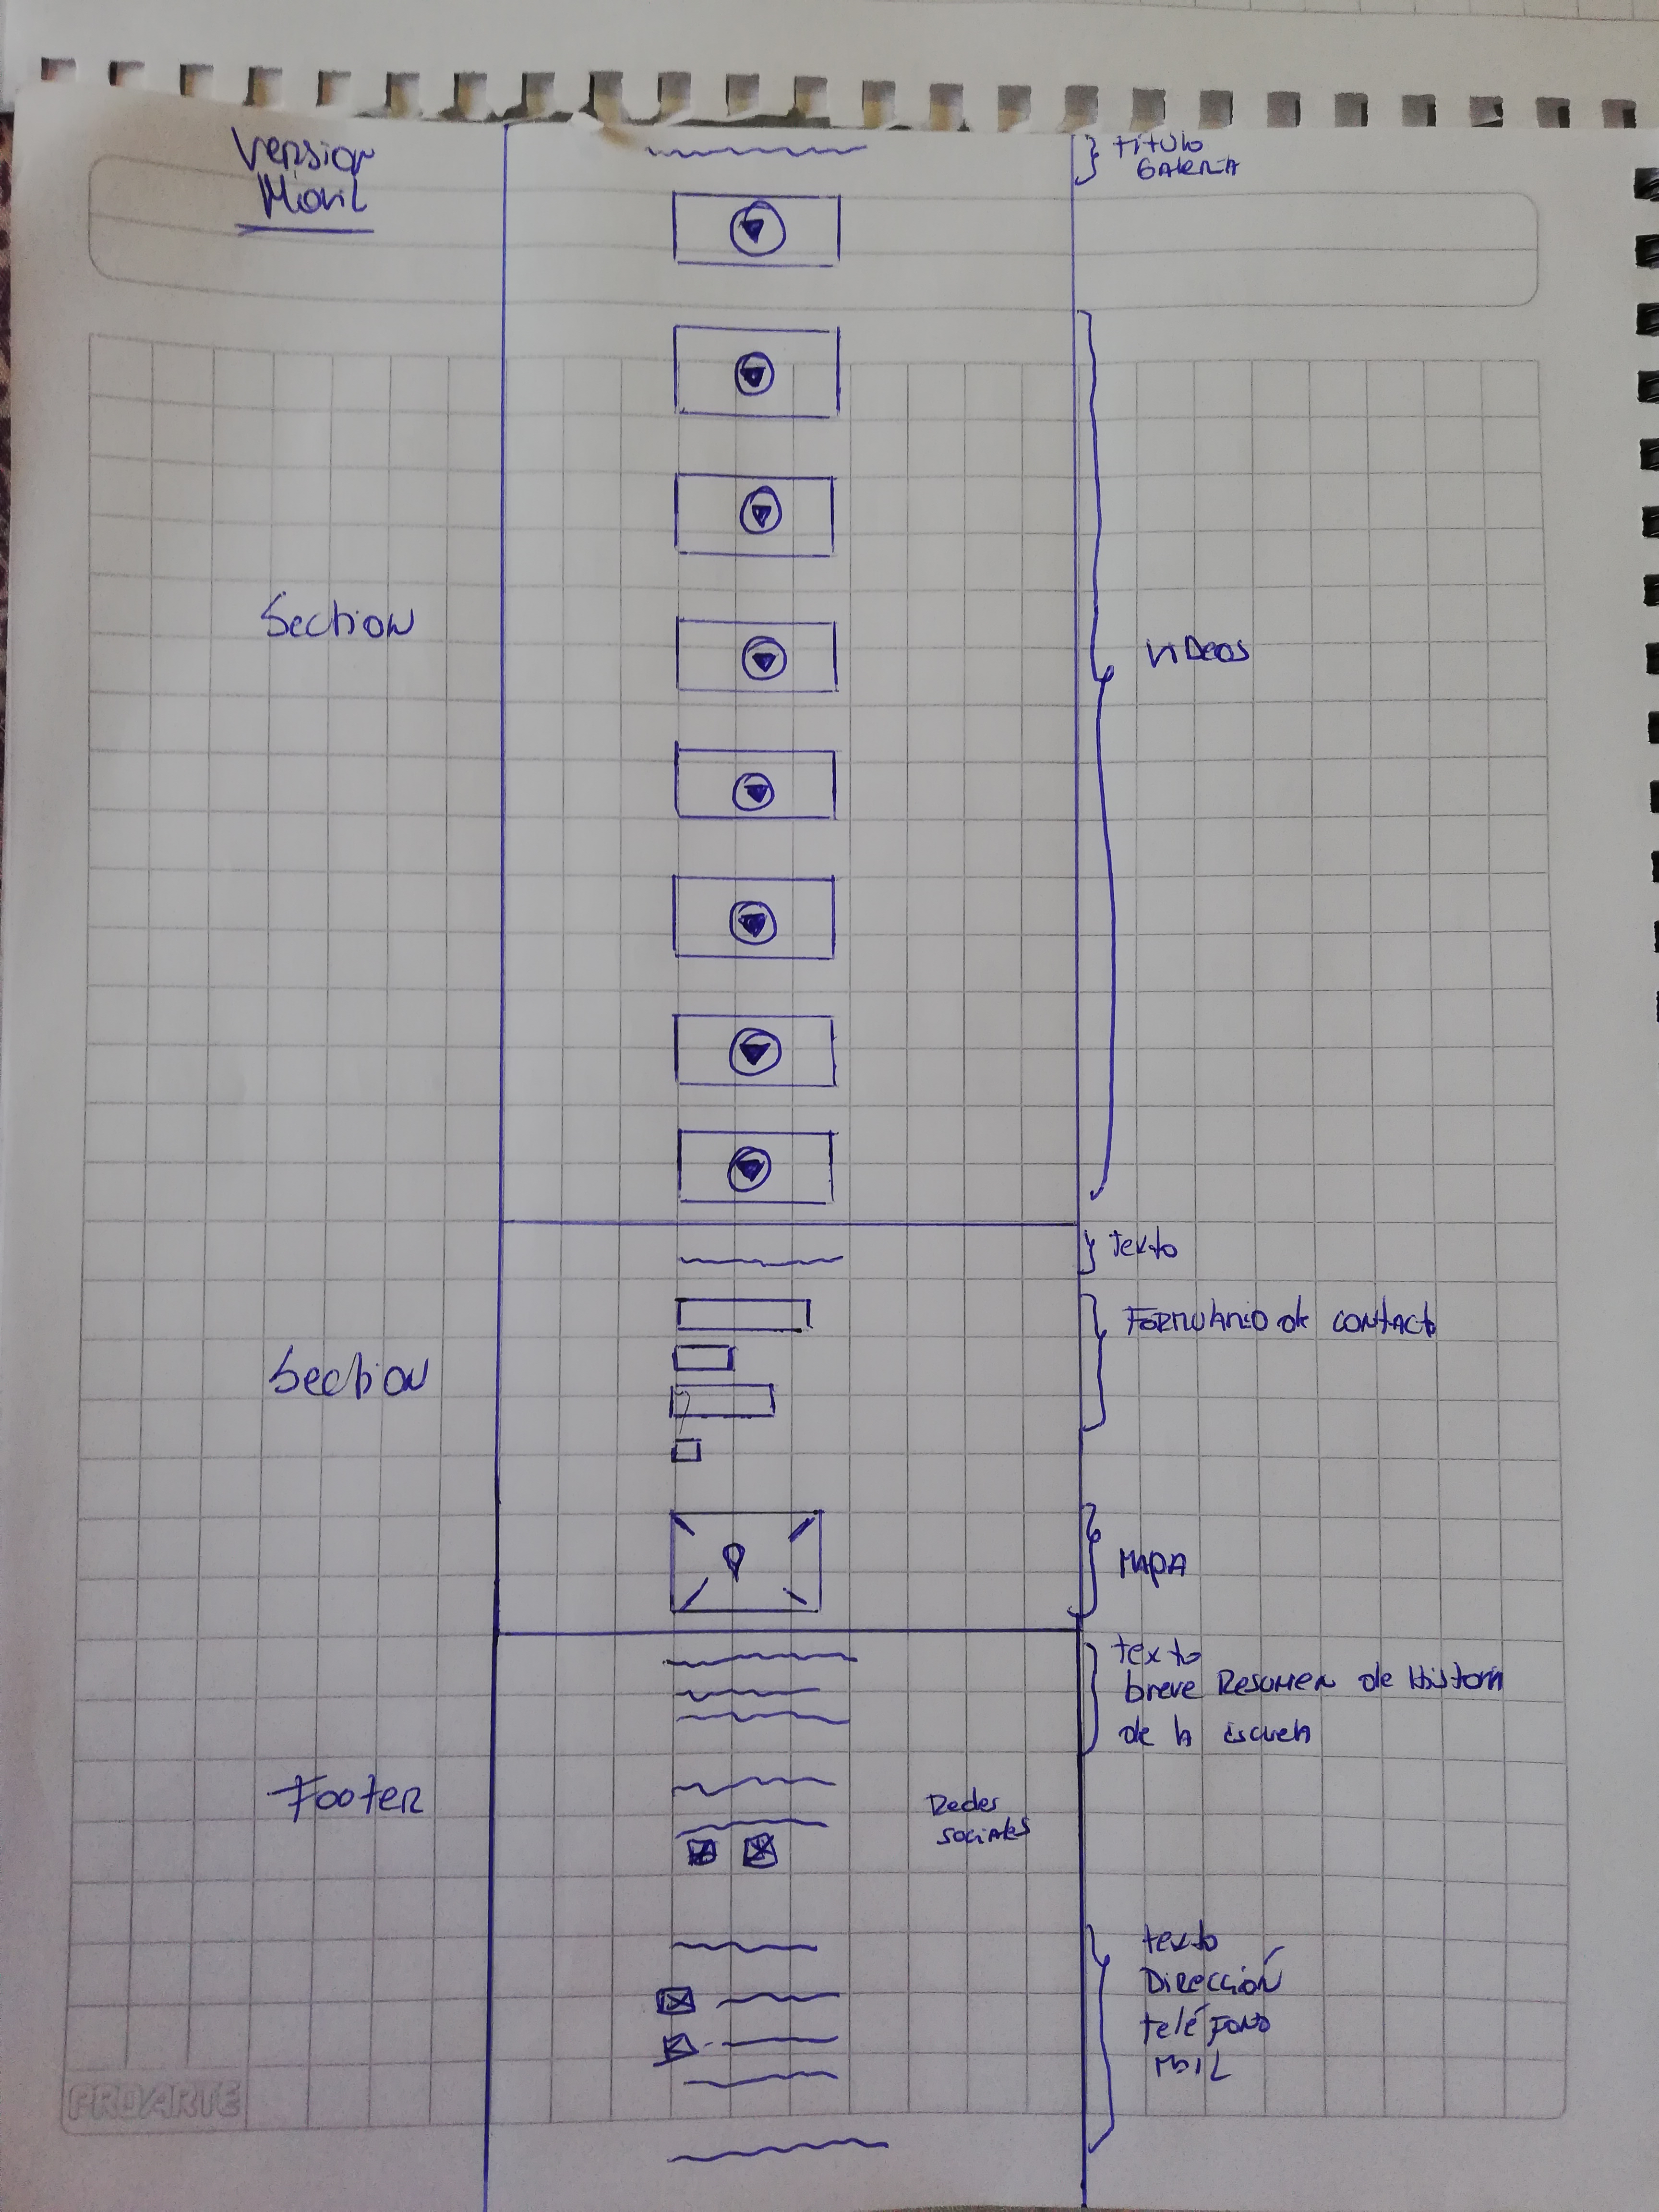 Version
Movil
título
GALERIA
Section
VIDEOS
texto
Section
Formulario de contacto
MAPA
texto
breve Resumen de Historia
de la escuela
Footer
Redes
sociales
texto
Dirección
teléfono
MAIL
PROARTE